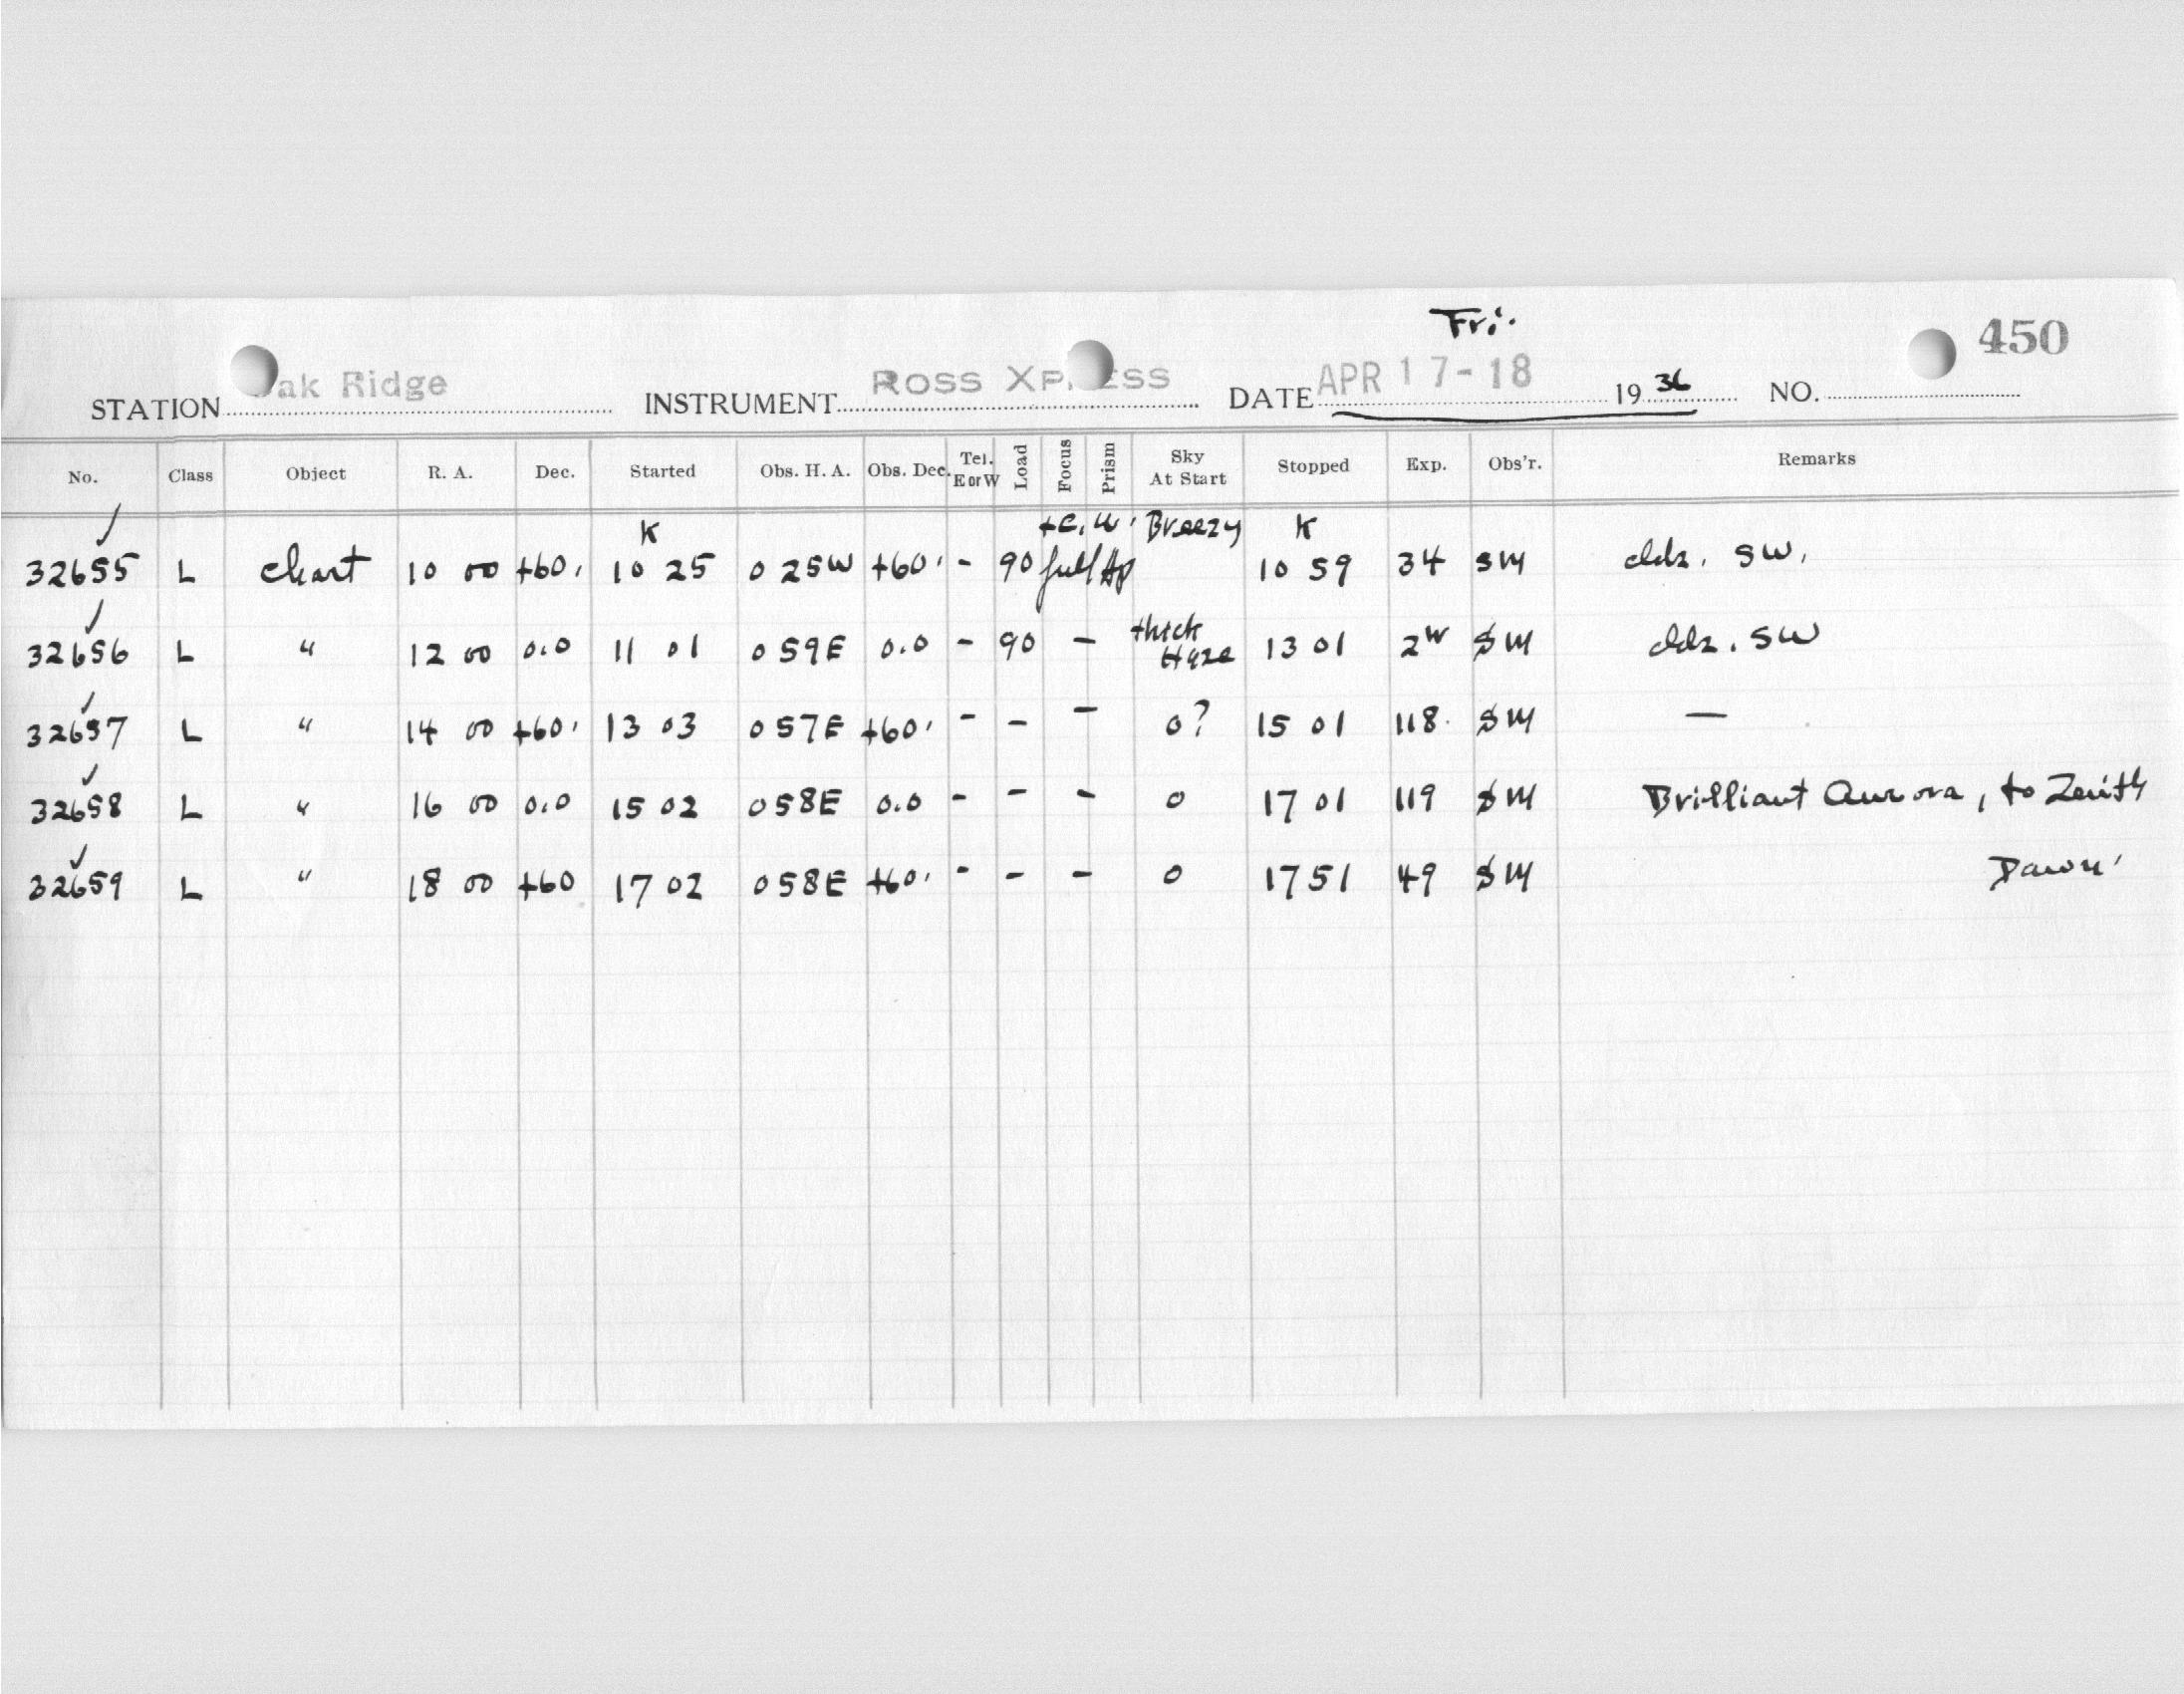 Fri.
450
STATION ak Ridge INSTRUMENT ROSS XP ESS DATE APR 17-18 1936 NO.
No. Class Object R. A. Dec. Started Obs. H. A. Obs. Dec. Tel. E or W Load Focus Prism Sky At Start Stopped Exp. Obs'r. Remarks
K Breezy K
32655 L chart 10 00 +60. 10 25 0 25W +60. - 90 full Ap 10 59 34 SM clds. SW.
32656 L " 12 00 0.0 11 01 0 59E 0.0 - 90 - thick Haze 13 01 2 SM clds. SW
32657 L " 14 00 +60. 13 03 0 57E +60. - - - 0? 15 01 118. SM —
32658 L " 16 00 0.0 15 02 0 58E 0.0 - - - 0 17 01 119 SM Brilliant Aurora, to Zenith
32659 L " 18 00 +60 17 02 0 58E +60. - - - 0 17 51 49 SM Dawn